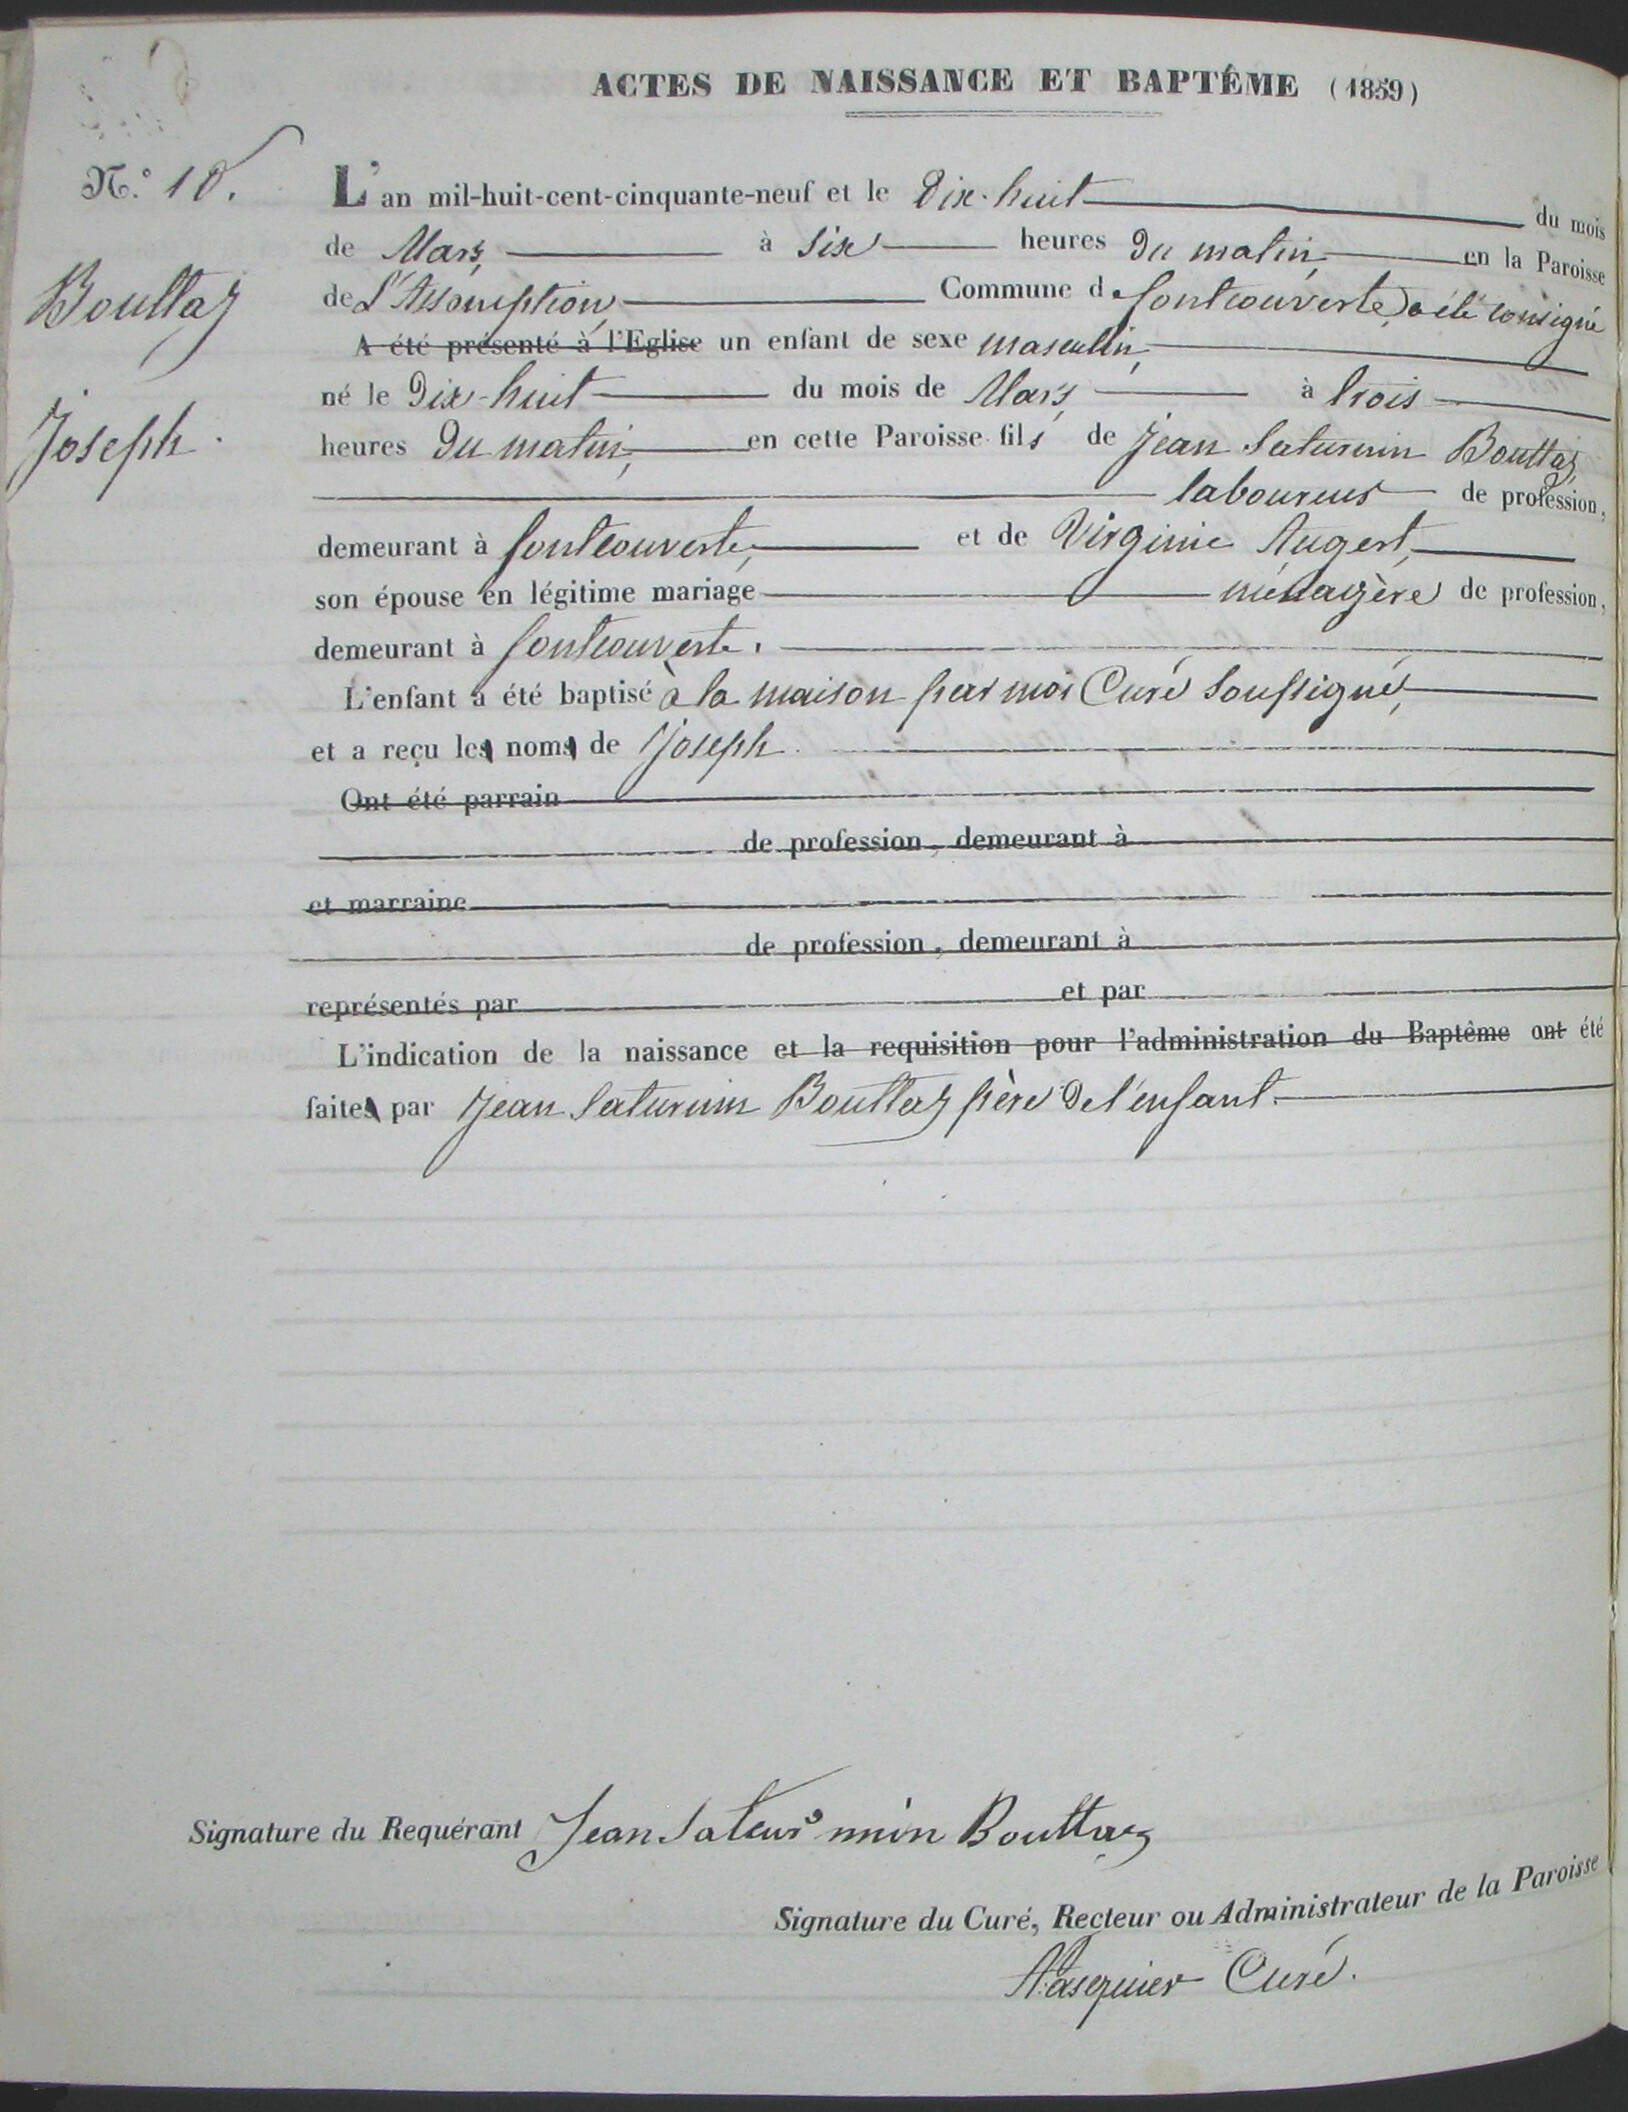 ACTES DE NAISSANCE ET BAPTÊME (1859)
N.° 10.
Bouttaz
Joseph.
L'an mil-huit-cent-cinquante-neuf et le Dix-huit du mois
de Mars, à Six heures du matin, en la Paroisse
de L'Assomption, Commune de fontcouverte, a été consigné
A été présenté à l'Eglise un enfant de sexe masculin,
né le Dix-huit du mois de Mars, à trois
heures du matin, en cette Paroisse fils de Jean Saturnin Bouttaz,
laboureur de profession,
demeurant à fontcouverte, et de Virginie Augert,
son épouse en légitime mariage ménagère de profession,
demeurant à fontcouverte.
L'enfant a été baptisé à la maison par moi Curé Soussigné,
et a reçu les noms de Joseph.
Ont été parrain
de profession, demeurant à
et marraine
de profession, demeurant à
représentés par et par
L'indication de la naissance et la requisition pour l'administration du Baptême ont été
faites par Jean Saturnin Bouttaz père de l'enfant.
Signature du Requérant Jean Satur nin Bouttaz
Signature du Curé, Recteur ou Administrateur de la Paroisse
Curé.